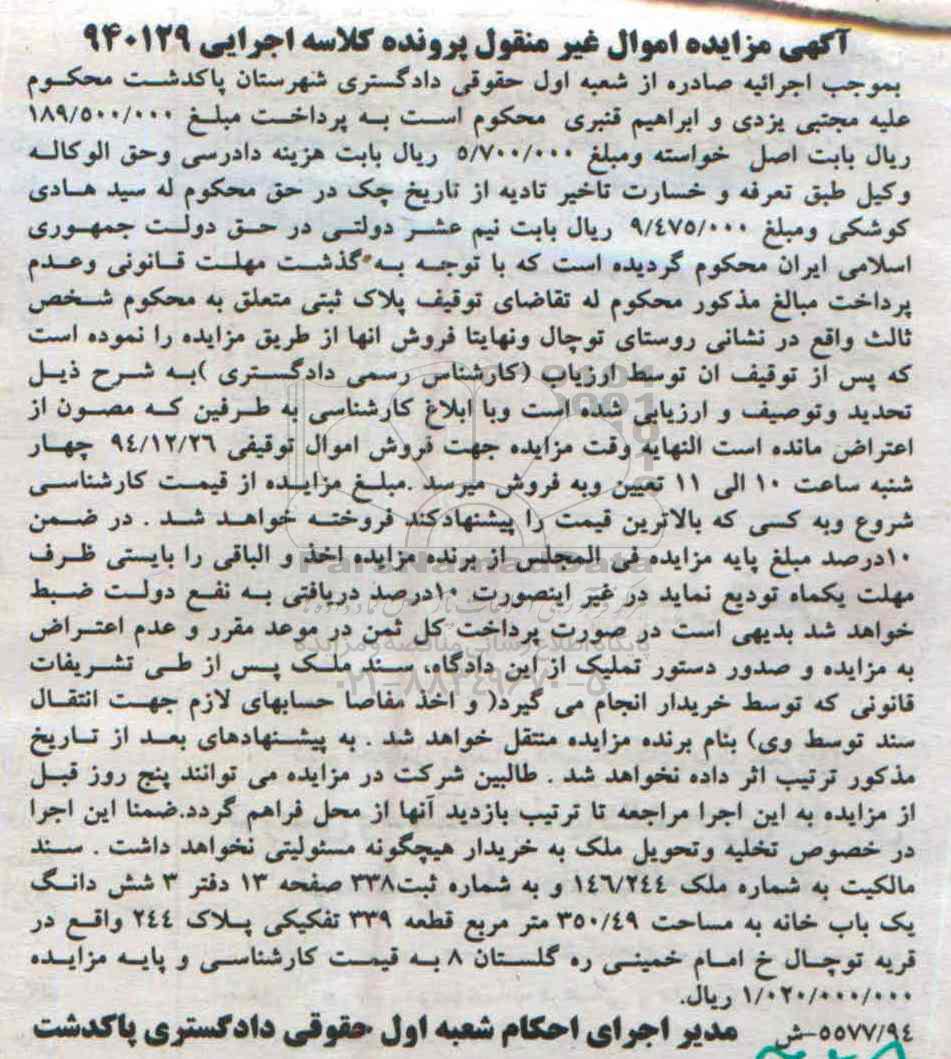 آگهی مزایده اموال غیر منقول پرونده کلاسه اجرایی ۹۴۰۱۲۹
بموجب اجرائیه صادره از شعبه اول حقوقی دادگستری شهرستان پاکدشت محکوم
علیه مجتبی یزدی و ابراهیم قنبری محکوم است به پرداخت مبلغ ۱۸۹/۵۰۰/۰۰۰
ریال بابت اصل خواسته ومبلغ ۵/۷۰۰/۰۰۰ ریال بابت هزینه دادرسی وحق الوکاله
وکیل طبق تعرفه و خسارت تاخیر تادیه از تاریخ چک در حق محکوم له سید هادی
کوشکی ومبلغ ۹/٤۷۵/۰۰۰ ریال بابت نیم عشر دولتی در حق دولت جمهوری
اسلامی ایران محکوم گردیده است که با توجه به گذشت مهلت قانونی وعدم
پرداخت مبالغ مذکور محکوم له تقاضای توقیف پلاک ثبتی متعلق به محکوم شخص
ثالث واقع در نشانی روستای توچال ونهایتا فروش انها از طریق مزایده را نموده است
که پس از توقیف ان توسط ارزیاب (کارشناس رسمی دادگستری )به شرح ذیل
تحدید وتوصیف و ارزیابی شده است وبا ابلاغ کارشناسی به طرفین که مصون از
اعتراض مانده است النهایه وقت مزایده جهت فروش اموال توقیفی ۹٤/۱۲/۲٦ چهار
شنبه ساعت ۱۰ الی ۱۱ تعیین وبه فروش میرسد .مبلغ مزایده از قیمت کارشناسی
شروع وبه کسی که بالاترین قیمت را پیشنهادکند فروخته خواهد شد . در ضمن
۱۰درصد مبلغ پایه مزایده فی المجلس از برنده مزایده اخذ و الباقی را بایستی ظرف
مهلت یکماه تودیع نماید در غیر اینصورت ۱۰درصد دریافتی به نفع دولت ضبط
خواهد شد بدیهی است در صورت پرداخت کل ثمن در موعد مقرر و عدم اعتراض
به مزایده و صدور دستور تملیک از این دادگاه، سند ملک پس از طی تشریفات
قانونی که توسط خریدار انجام می گیرد( و اخذ مفاصا حسابهای لازم جهت انتقال
سند توسط وی) بنام برنده مزایده منتقل خواهد شد . به پیشنهادهای بعد از تاریخ
مذکور ترتیب اثر داده نخواهد شد . طالبین شرکت در مزایده می توانند پنج روز قبل
از مزایده به این اجرا مراجعه تا ترتیب بازدید آنها از محل فراهم گردد.ضمنا این اجرا
در خصوص تخلیه وتحویل ملک به خریدار هیچگونه مسئولیتی نخواهد داشت . سند
مالکیت به شماره ملک ۱٤٦/۲٤٤ و به شماره ثبت۳۳۸ صفحه ۱۳ دفتر ۳ شش دانگ
یک باب خانه به مساحت ۳۵۰/٤۹ متر مربع قطعه ۳۳۹ تفکیکی پلاک ۲٤٤ واقع در
قریه توچال خ امام خمینی ره گلستان ۸ به قیمت کارشناسی و پایه مزایده
۱/۰۲۰/۰۰۰/۰۰۰ ریال.
۵۵۷۷/۹٤-ش مدیر اجرای احکام شعبه اول حقوقی دادگستری پاکدشت
ParsNamadData
پایگاه اطلاع رسانی مناقصه و مزایده
۰۲۱-۸۸۳۴۹۶۷۰-۵